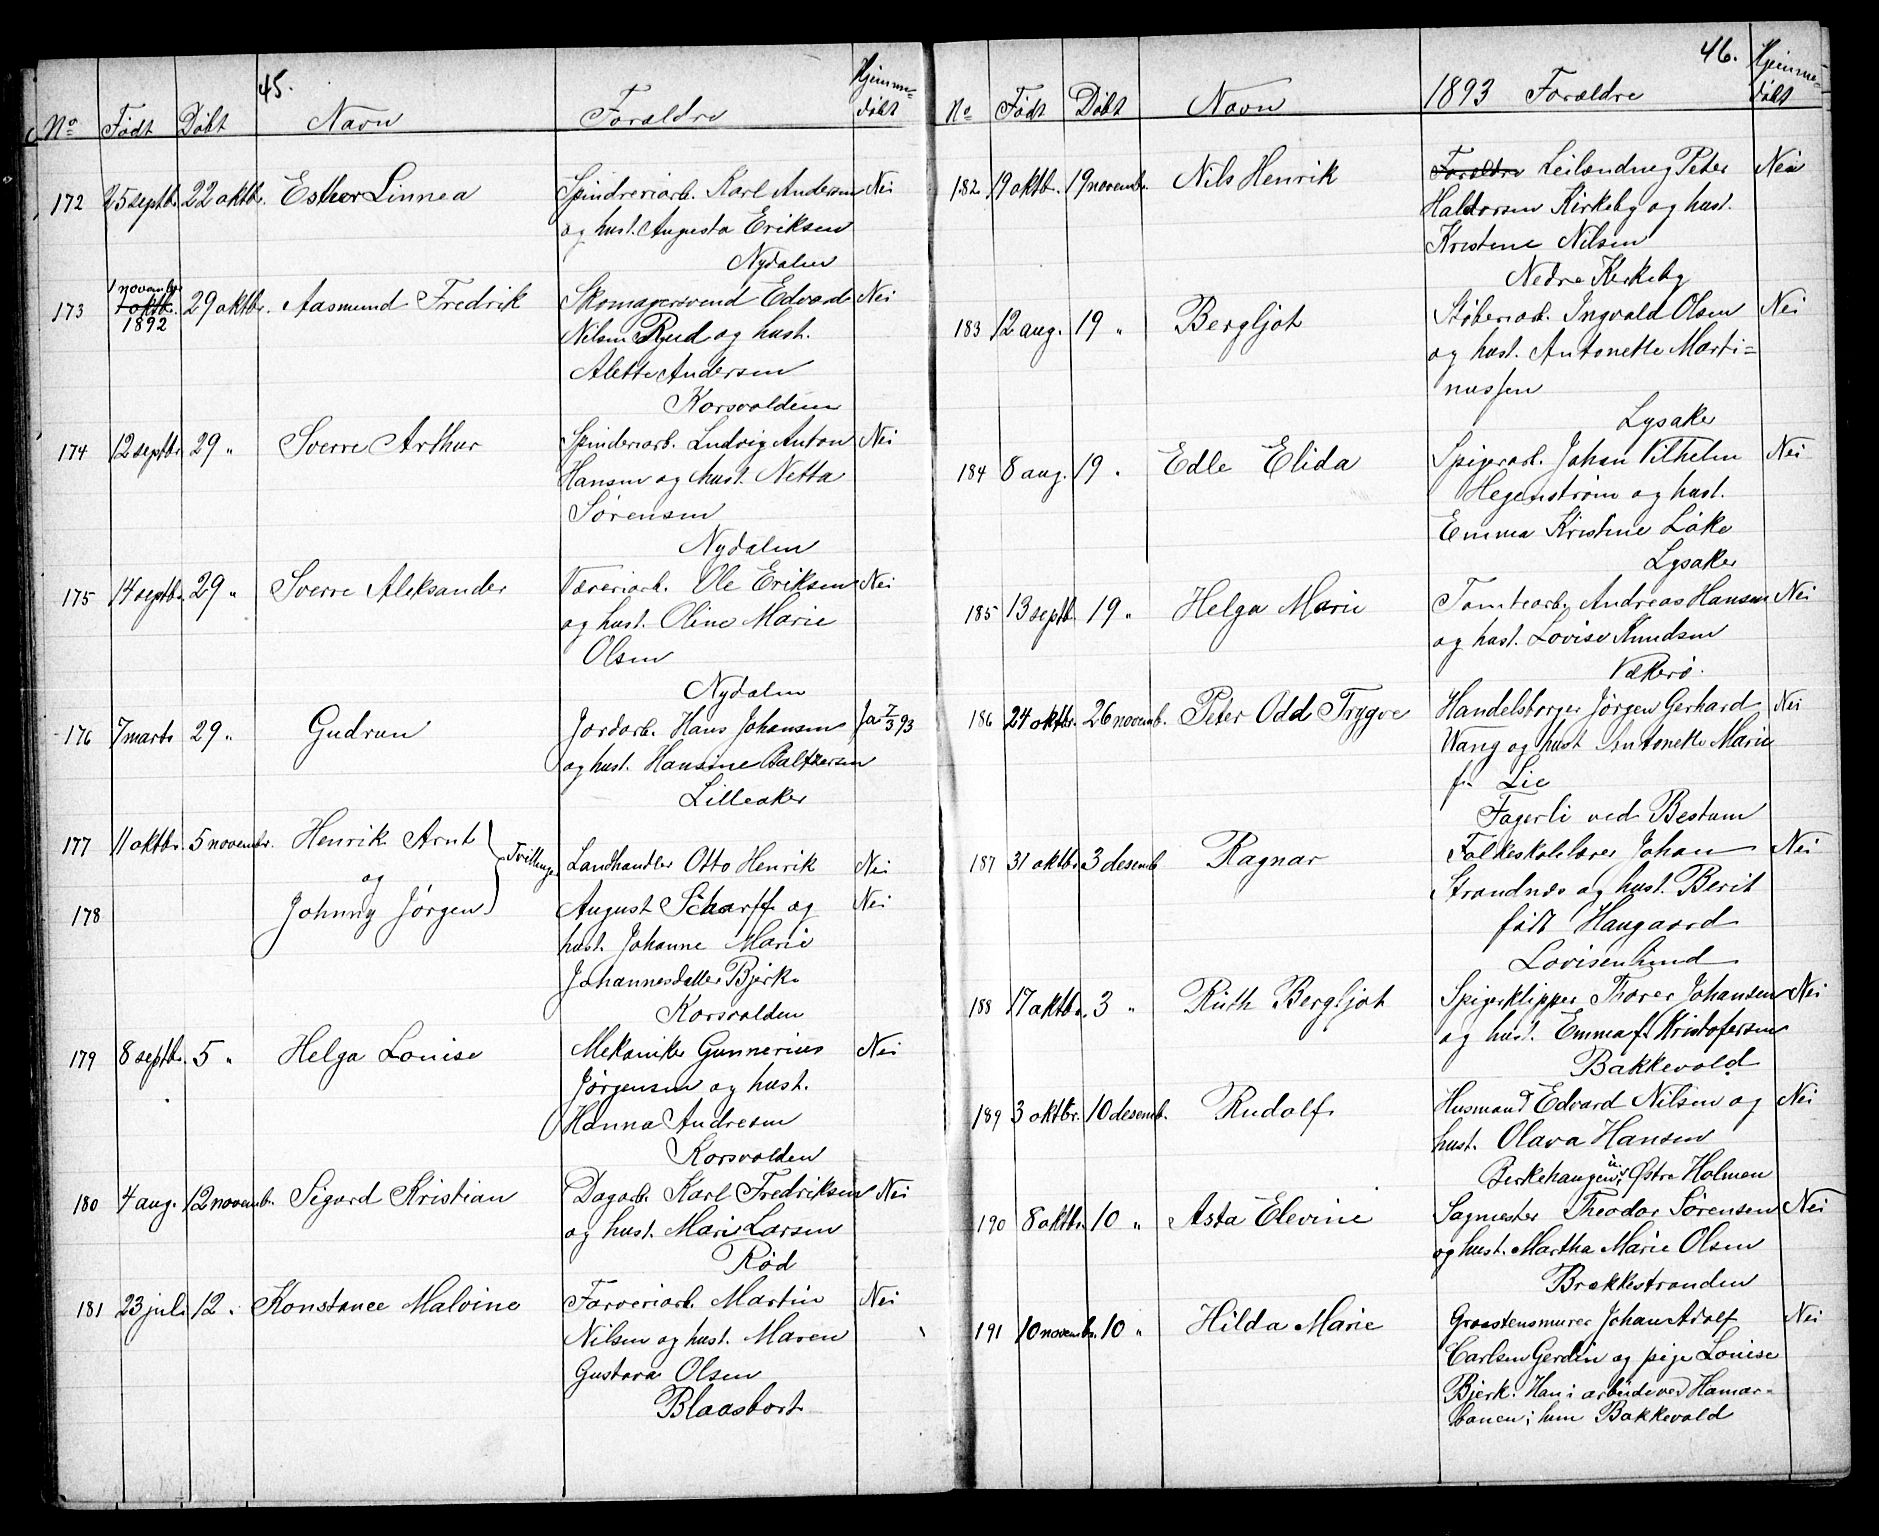 45.
No Født Døbt Navn Forældre Hjemmedøbt
172 25 septb. 22 oktb. Esther Linnea Spindreriarb. Karl Andersen Nei
og hust. Augusta Eriksen
Nydalen
1 novembr.
173 1 oktb. 29 oktbr. Aasmund Fredrik Skomagersvend Edvard Nei
1892
Nilsen Ryd og hust.
Alette Andersen
Korsvolden
174 12 septbr. 29 " Sverre Arthur Spinderiarb. Ludvig Anton Nei
Hansen og hust. Netta
Sørensen
Nydalen
175 14 septb. 29 " Sverre Aleksander Væveriarb. Ole Eriksen Nei
og hust. Oline Marie
Olsen
Nydalen
176 7 marts 29 " Gudrun Jordarb. Hans Johansen Ja 7/3 93
og hust. Hansine Baltzersen
Lilleaker
177 11 oktbr. 5 novembr. Henrik Arnt
og Tvillinger Landhandler Otto Henrik Nei
178 Johnny Jørgen August Scharff og Nei
hust. Johanne Marie
Johannesdatter Bjerke
Korsvolden
179 8 septb. 5 " Helga Louise Mekaniker Gunnerius Nei
Jørgensen og hust.
Hanna Andresen
Korsvolden
180 4 aug. 12 novemb. Sigard Kristian Dagarb. Karl Fredriksen Nei
og hust. Marie Larsen
Rød
181 23 juli 12 " Konstance Malvine Farveriarb. Martin Nei
Nilsen og hust. Maren
Gustava Olsen
Blaasbort
46.
No Født Døbt Navn 1893 Forældre Hjemmedøbt
182 19 oktb. 19 novemb. Nils Henrik Forældre Leilænding Peter Nei
Haldorsen Kirkeby og hust.
Kristine Nilsen
Nedre Kirkeby
183 12 aug. 19 " Bergljot Støberiarb. Ingvald Olsen Nei
og hust. Antonette Marti=
nussen
Lysaker
184 8 aug. 19 " Edle Elida Spigerarb. Johan Vilhelm Nei
Hegenstrøm og hust.
Emma Kristine Løke
Lysaker
185 13 septb. 19 " Helga Marie Tomtearb. Andreas Hansen Nei
og hust. Lovise Knudsen
Vækerø.
186 24 oktbr. 26 novemb. Peter Odd Trygve Handelsborger Jørgen Gerhard Nei
Wang og hust Antonette Marie
f. Lie
Fagerli ved Bestum
187 31 oktbr. 3 desemb Ragnar Folkeskolelærer Johan Nei
Strandnæs og hust. Berit
født Haugaard
Lovisenlund
188 17 oktb. 3 " Ruth Bergljot Spigerklipper Thorer Johansen Nei
og hust. Emma f. Kristofersen
Bakkevold
189 3 oktbr. 10 desemb. Rudolf Husmand Edvard Nilsen og Nei
hust. Olava Hansen
Berkehaugen u. Østre Holmen
190 8 oktbr. 10 " Asta Elevine Sagmester Theodor Sørensen Nei
og hust. Martha Marie Olsen
Brækkestranden
191 10 novembr. 10 " Hilda Marie Graastensmurer Johan Adolf Nei
Carlsen Gerdin og pige Louise
Bjerk. Han i arbeide ved Hamar-
banen; hun Bakkevold